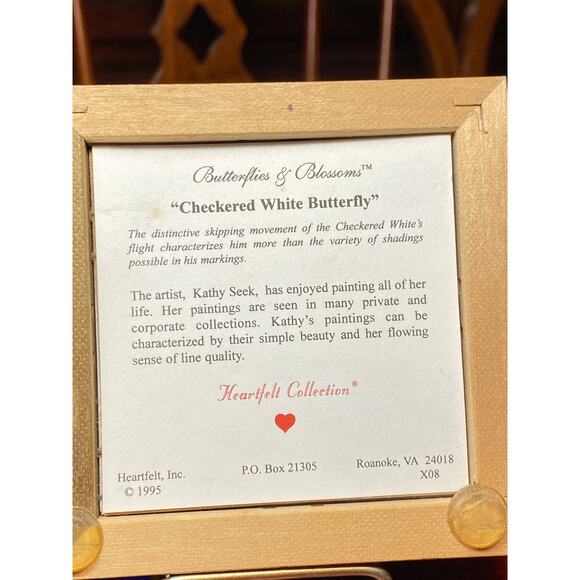 Butterflies & Blossoms™
"Checkered White Butterfly"
The distinctive skipping movement of the Checkered White's
flight characterizes him more than the variety of shadings
possible in his markings.
The artist, Kathy Seek, has enjoyed painting all of her
life. Her paintings are seen in many private and
corporate collections. Kathy's paintings can be
characterized by their simple beauty and her flowing
sense of line quality.
Heartfelt Collection®
Heartfelt, Inc. P.O. Box 21305 Roanoke, VA 24018
© 1995 X08